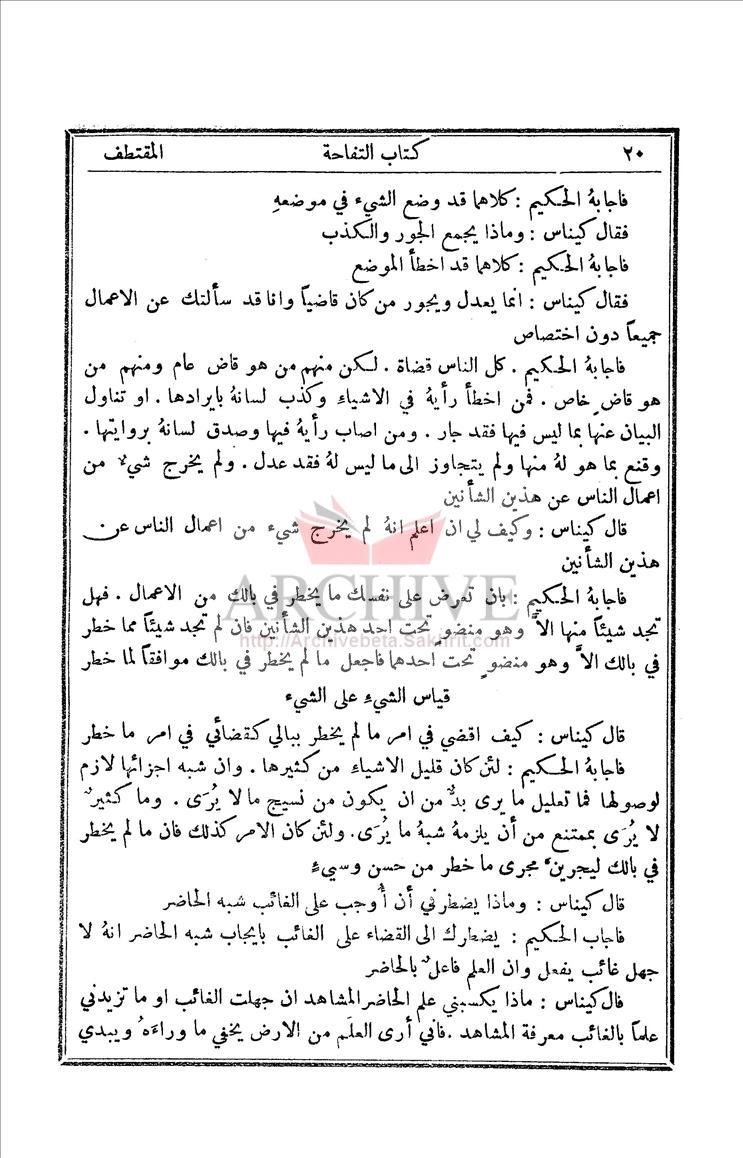 ٢٠ كتاب التفاحة المقتطف
فاجابهُ الحكيم : كلاهما قد وضع الشيء في موضعهِ
فقال كيناس : وماذا يجمع الجور والكذب
فاجابهُ الحكيم : كلاهما قد اخطأ الموضع
فقال كيناس : انما يعدل ويجور من كان قاضياً وانا قد سألتك عن الاعمال
جميعاً دون اختصاص
فاجابهُ الحكيم . كل الناس قضاة . لكن منهم من هو قاض عام ومنهم من
هو قاضٍ خاص . فمن اخطأ رأيهُ في الاشياء وكذب لسانهُ بايرادها . او تناول
البيان عنها بما ليس فيها فقد جار . ومن اصاب رأيهُ فيها وصدق لسانهُ بروايتها .
وقنع بما هو لهُ منها ولم يتجاوز الى ما ليس لهُ فقد عدل . ولم يخرج شيءٌ من
اعمال الناس عن هذين الشأنين
قال كيناس : وكيف لي ان اعلم انهُ لم يخرج شيء من اعمال الناس عن
هذين الشأنين
ARCHIVE
فاجابهُ الحكيم : بان تعرض على نفسك ما يخطر في بالك من الاعمال . فهل
تجد شيئاً منها الاَّ وهو منضوٍ تحت احد هذين الشأنين فان لم تجد شيئاً مما خطر
http://Archivebeta.Sakhrit.com
في بالك الاَّ وهو منضوٍ تحت احدهما فاجعل ما لم يخطر في بالك موافقاً لما خطر
قياس الشيء على الشيء
قال كيناس : كيف اقضي في امر ما لم يخطر ببالي كقضائي في امر ما خطر
فاجابهُ الحكيم : لئن كان قليل الاشياء من كثيرها . وان شبه اجزائها لازم
لوصولها فما تعليل ما يرى بدٌّ من ان يكون من نسيج ما لا يُرَى . وما كثيرٌ
لا يُرَى بممتنع من أن يلزمهُ شبهُ ما يُرَى . ولئن كان الامر كذلك فان ما لم يخطر
في بالك ليجرينَّ مجرى ما خطر من حسن وسيءٍ
قال كيناس : وماذا يضطرني أن أُوجب على الغائب شبه الحاضر
فاجاب الحكيم : يضطرك الى القضاء على الغائب بايجاب شبه الحاضر انهُ لا
جهل غائب يفعل وان العلم فاعلٌ بالحاضر
قال كيناس : ماذا يكسبني علم الحاضر المشاهد ان جهلت الغائب او ما تزيدني
علماً بالغائب معرفة المشاهد . فاني أرى العلَم من الارض يخفي ما وراءَهُ ويبدي